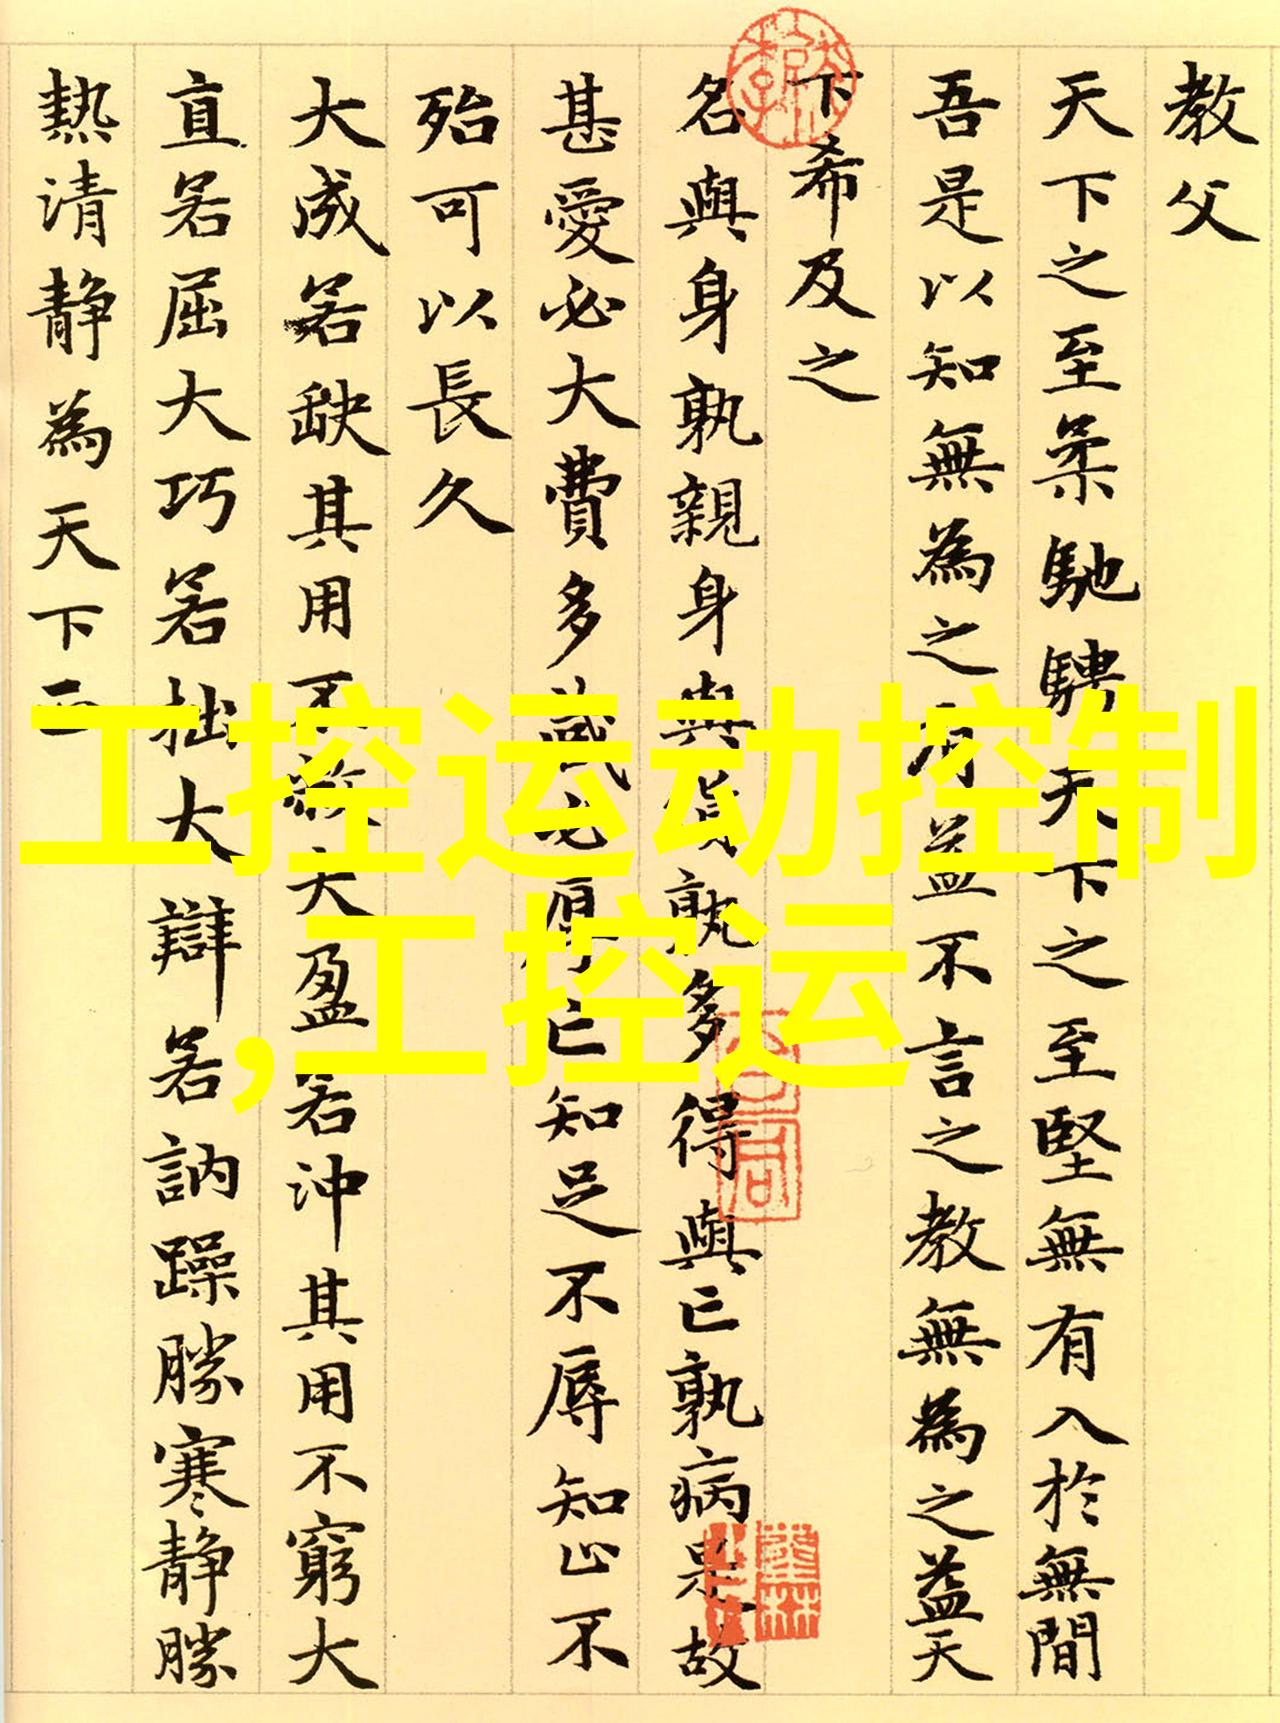 教父
天下之至柔馳騁天下之至堅無有入於無間
吾是以知無為之有益不言之教無為之益天
下希及之
名與身孰親身與貨孰多得與亡孰病是故
甚愛必大費多藏必厚亡知足不辱知止不
殆可以長久
大成若缺其用不敝大盈若沖其用不窮大
直若屈大巧若拙大辯若訥躁勝寒靜勝
熱清靜為天下正
工控运动控制
,工控运